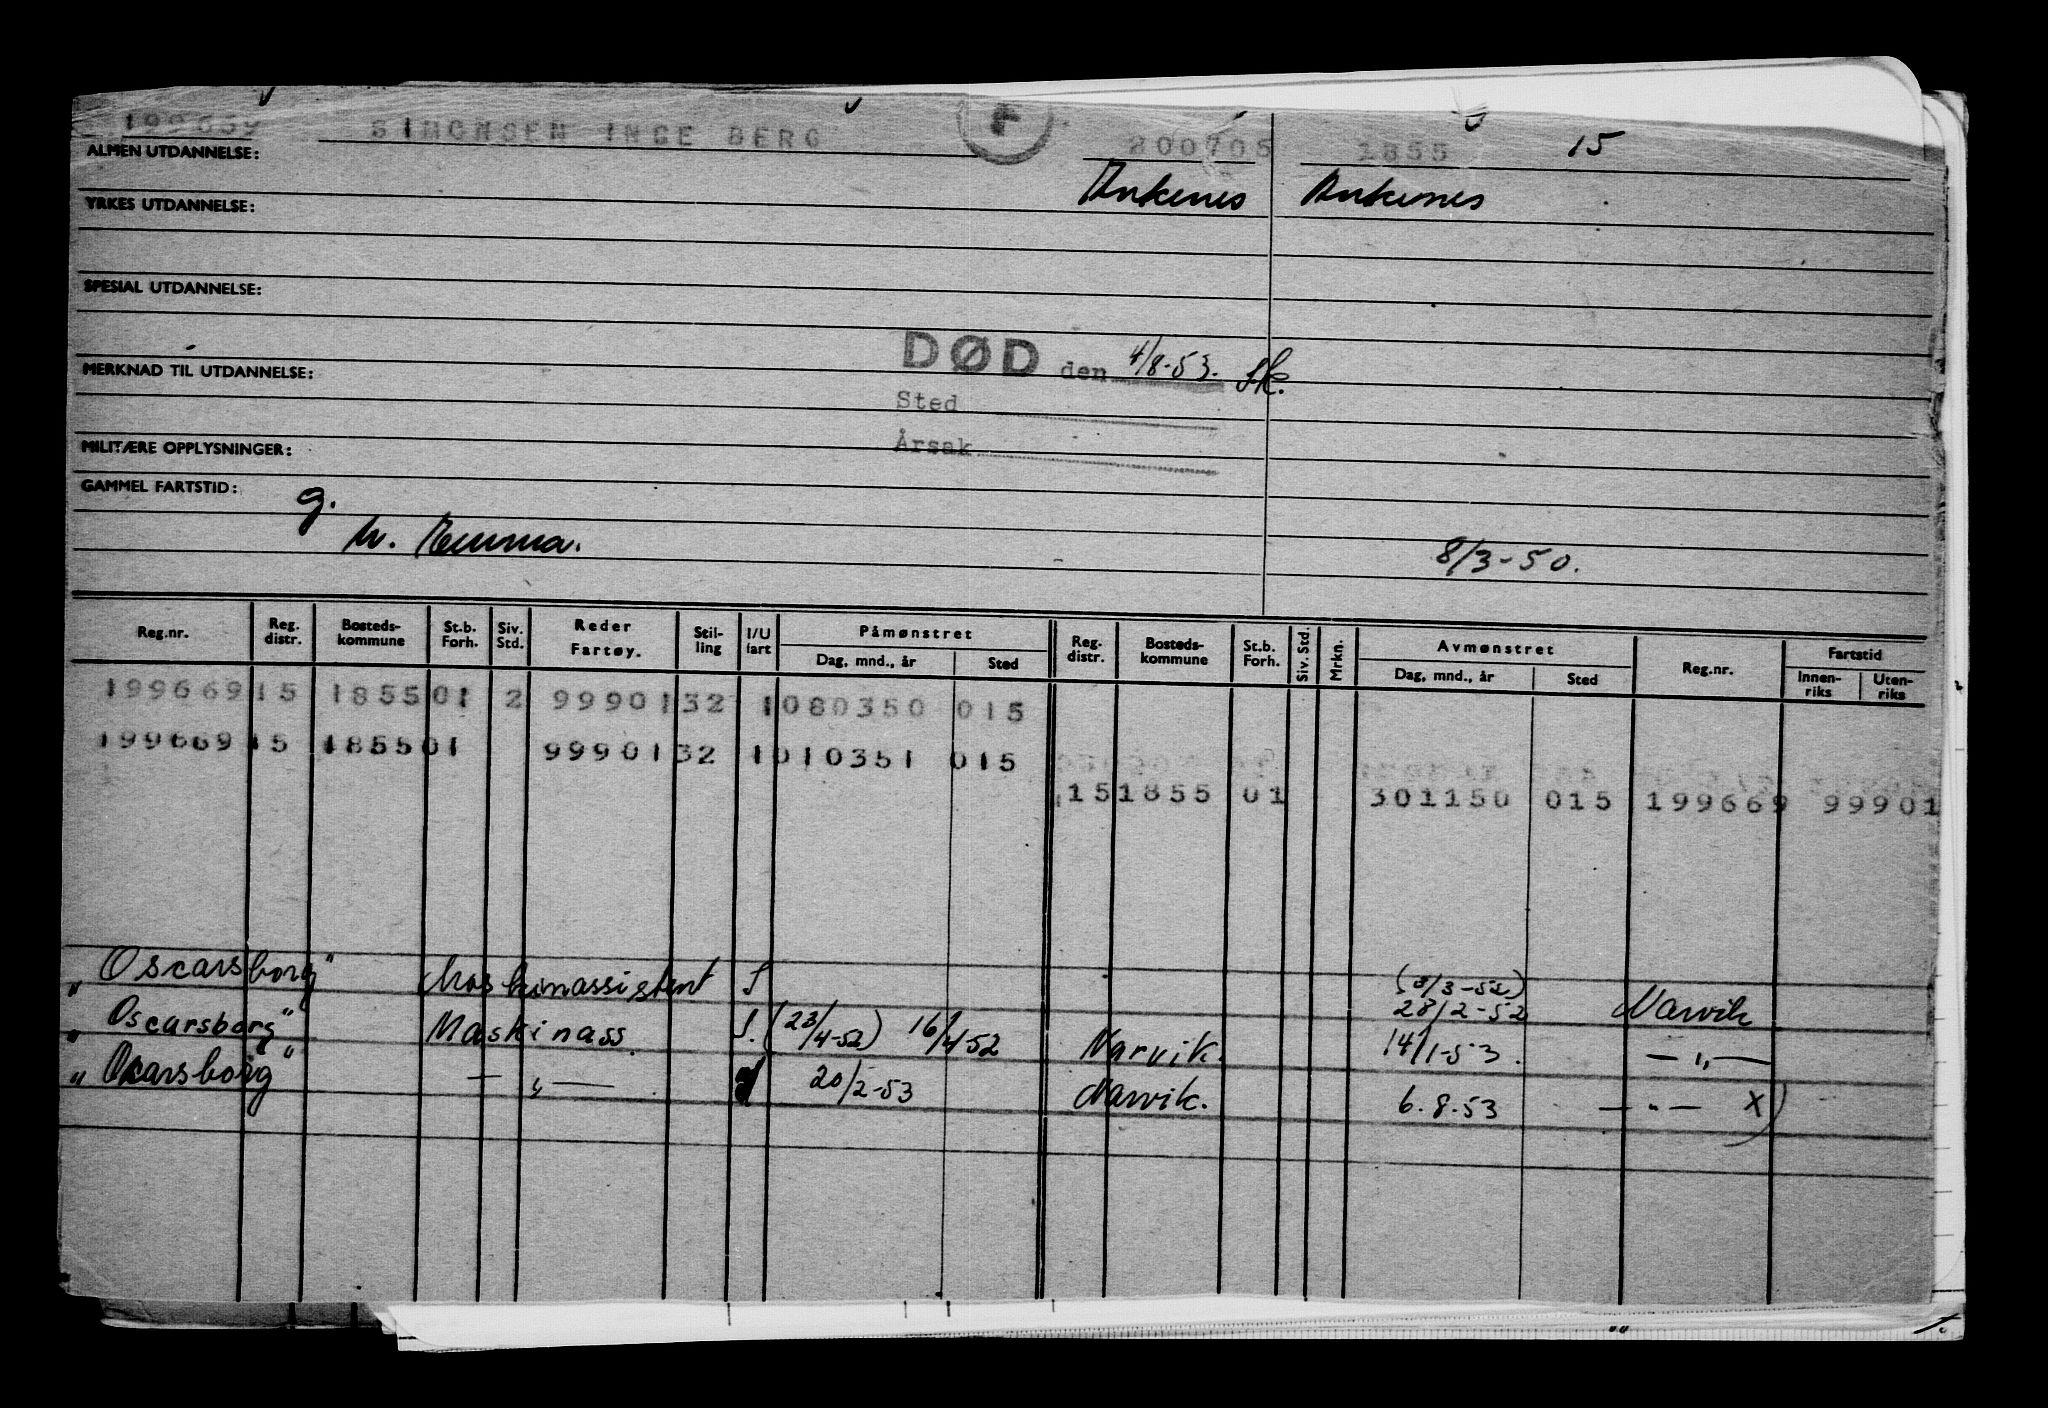 199669 SIMONSEN INGE BERG F 200705 1855 15
ALMEN UTDANNELSE:
Ankenes Ankenes
YRKES UTDANNELSE:
SPESIAL UTDANNELSE:
DØD den 4/8-53.
MERKNAD TIL UTDANNELSE:
Sted
MILITÆRE OPPLYSNINGER:
Årsak
GAMMEL FARTSTID: g.
h. Emma. 8/3-50.
Reg.nr. Reg. distr. Bosteds-kommune St.b. Forh. Siv. Std. Reder Fartøy. Stil-ling I/U fart Påmønstret Dag, mnd., år Sted Reg. distr. Bosteds-kommune St.b. Forh. Siv. Std. Mrkn. Avmønstret Dag, mnd., år Sted Reg.nr. Fartstid Innen-riks Uten-riks
199669 15 1855 01 2 99901 32 1 080350 015
199669 15 1855 01 99901 32 1 010351 015
15 1855 01 301150 015 199669 99901
"Oscarsborg" Maskinassistent I (3/3-52) 28/2-52 Narvik
"Oscarsborg" Maskinass. I. (23/4-52) 16/4-52 Narvik. 14/1-53. — „ —
"Oscarsborg" — „ — 20/2-53 Narvik. 6.8.53 — „ — X)